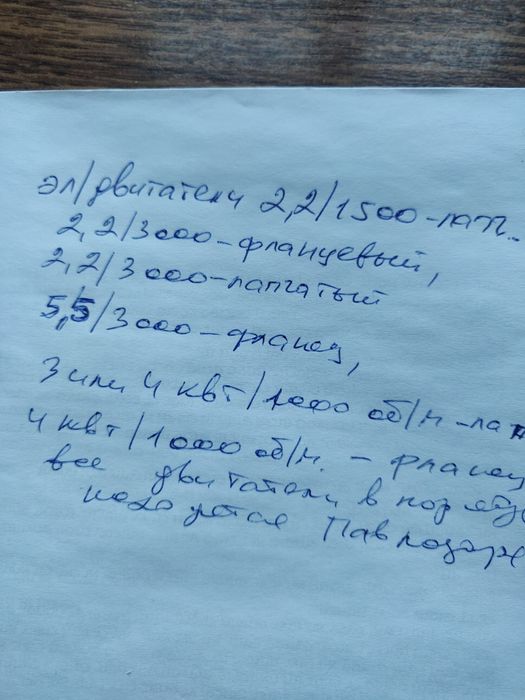 эл/двигатели 2,2/1500-лапч..
2,2/3000-фланцевый,
2,2/3000-лапчатый
5,5/3000-фланец,
3 или 4 квт/1000 об/м-лап
4 квт/1000 об/м. - фланец
все двигатели в поряд
находятся Павлодаре